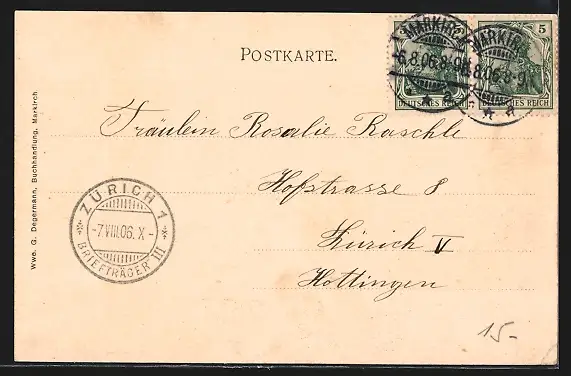 POSTKARTE.
MARKIRCH
-6.8.06.8-9
a
DEUTSCHES REICH
MARKIRCH
8.06.8-9
a
5
DEUTSCHES REICH
Fräulein Rosalie Raschle
Hofstrasse 8
Zürich V
Hottingen
ZÜRICH 1
-7.VIII.06.X-
BRIEFTRÄGER III
Wwe. G. Degermann, Buchhandlung, Markirch
15-